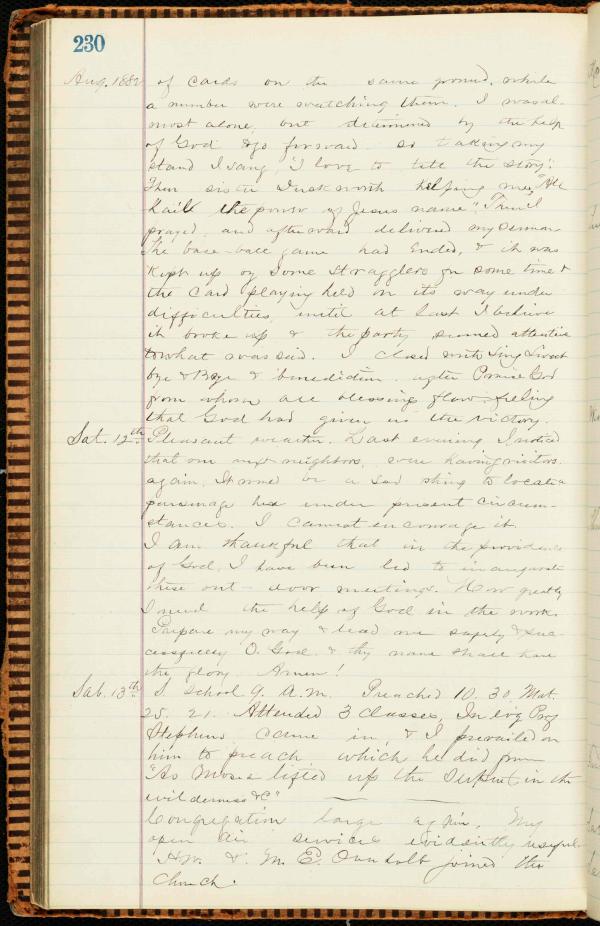 230
Aug. 1882 of cards on the same ground, while
a number were watching them. I was al-
most alone, but determined by the help
of God to go forward so taking my
stand I sang, "I love to tell the story".
Then sister Duckworth helping me, "All
Hail the power of Jesus name". Then I
prayed, and afterward delivered my sermon
The base-ball game had ended, & it was
Kept up by some stragglers for some time &
the card playing held on its way under
difficulties, until at last I believe
it broke up & the party seemed attentive
to what was said. I closed with Sing Sweet
bye & Bye & benediction after Praise God
from whom all blessing flow - feeling
that God had given us the victory.
Sat. 12th Pleasant weather. Last evening I noticed
that our next neighbors, were having visitors
again. It would be a sad thing to locate a
parsonage here under present circum-
stances. I cannot encourage it.
I am thankful that in the providence
of God, I have been led to inaugurate
these out-door meetings. How greatly
I need the help of God in the work.
Prepare my way & lead me safely & suc-
cessfully O. God. & thy name shall have
the glory. Amen!
Sab. 13th S. School 9. A.M. Preached 10.30 Mat.
25. 21. Attended 3 classes, In evg Prof
Stephens came in & I prevailed on
him to preach which he did from
"As Moses lifted up the Serpent in the
wilderness &c"
Congregation large again. My
open air services evidently useful
H.W. & M. E. joined the
Church.